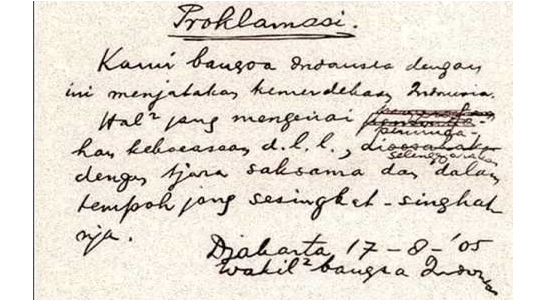 Proklamasi.
Kami bangsa Indonesia dengan
ini menjatakan kemerdekaan Indonesia.
Hal² jang mengenai
peminda-
han kekoeasaan d.l.l.,
diselenggarakan
dengan tjara saksama dan dalam
tempoh jang sesingkat-singkat-
nja.
Djakarta 17 - 8 - '05
Wakil² bangsa Indonesia